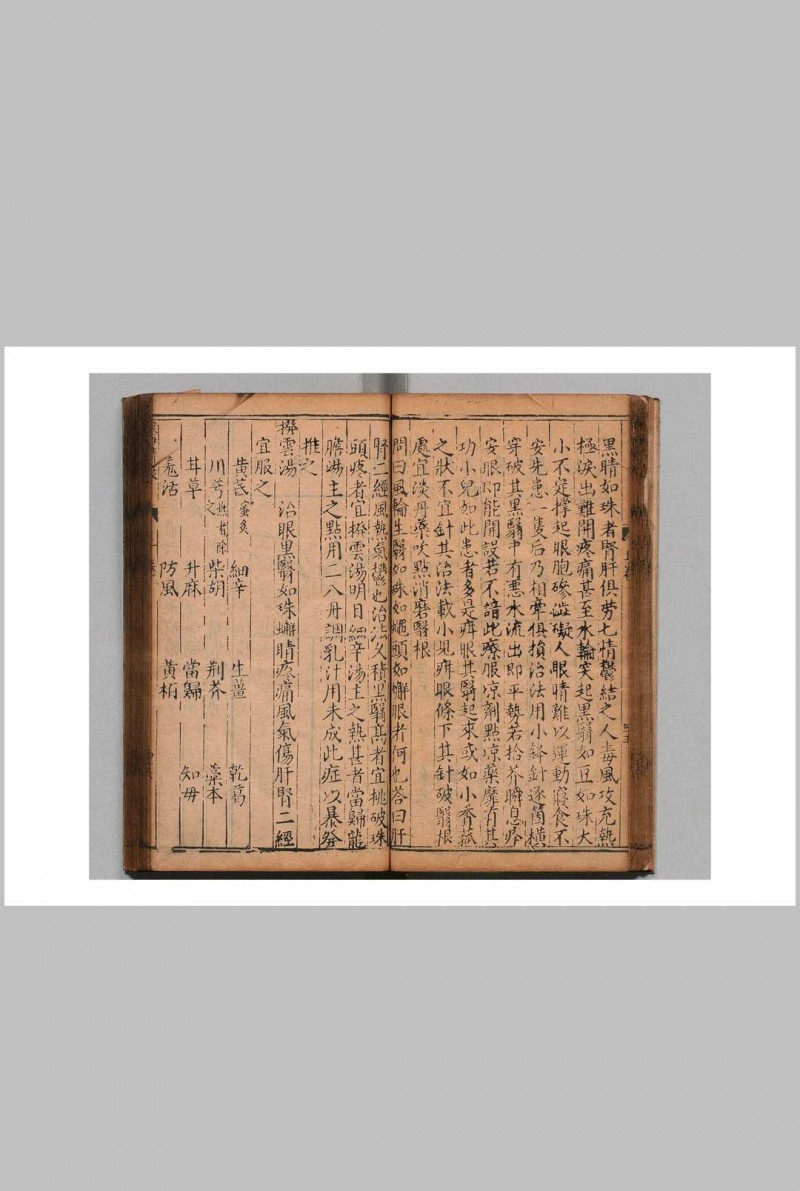 黑睛如珠者腎肝俱勞七情鬱結之人毒風攻充熱
極淚出難開疼痛甚至水輪突起黑翳如豆如珠大
小不定撐起眼胞磣澁礙人眼睛難以運動寢食不
安先患一隻后乃相牽俱損治法用小鋒針逐箇橫
穿破其黑翳中有惡水流出即平勢若拾芥瞬息疼
安眼即能開設若不諳此療服凉劑點凉藥靡有其
功小兒如此患者多是疳眼其翳起來或如小香菰
之狀不宜針其治法載小兒疳眼條下其針破翳根
處宜淡丹藥吹點消磨翳根
問曰風輪生翳如珠如蠅頭如蠏眼者何也答曰肝
腎二經風熱氣鬱也治法久積黑翳髙者宜挑破珠
頭疼者宜撥雲湯明目細辛湯主之熱甚者當歸龍
膽湯主之點用二八丹調乳汁用未成此症以暴發
推之
撥雲湯 治眼黑翳如珠蠏睛疼痛風氣傷肝腎二經
宜服之
黄芪蜜炙 細辛 生薑 乾葛
川芎 柴胡 荆芥 藁本
甘草 升麻 當歸 知母
羗活 防風 黄栢